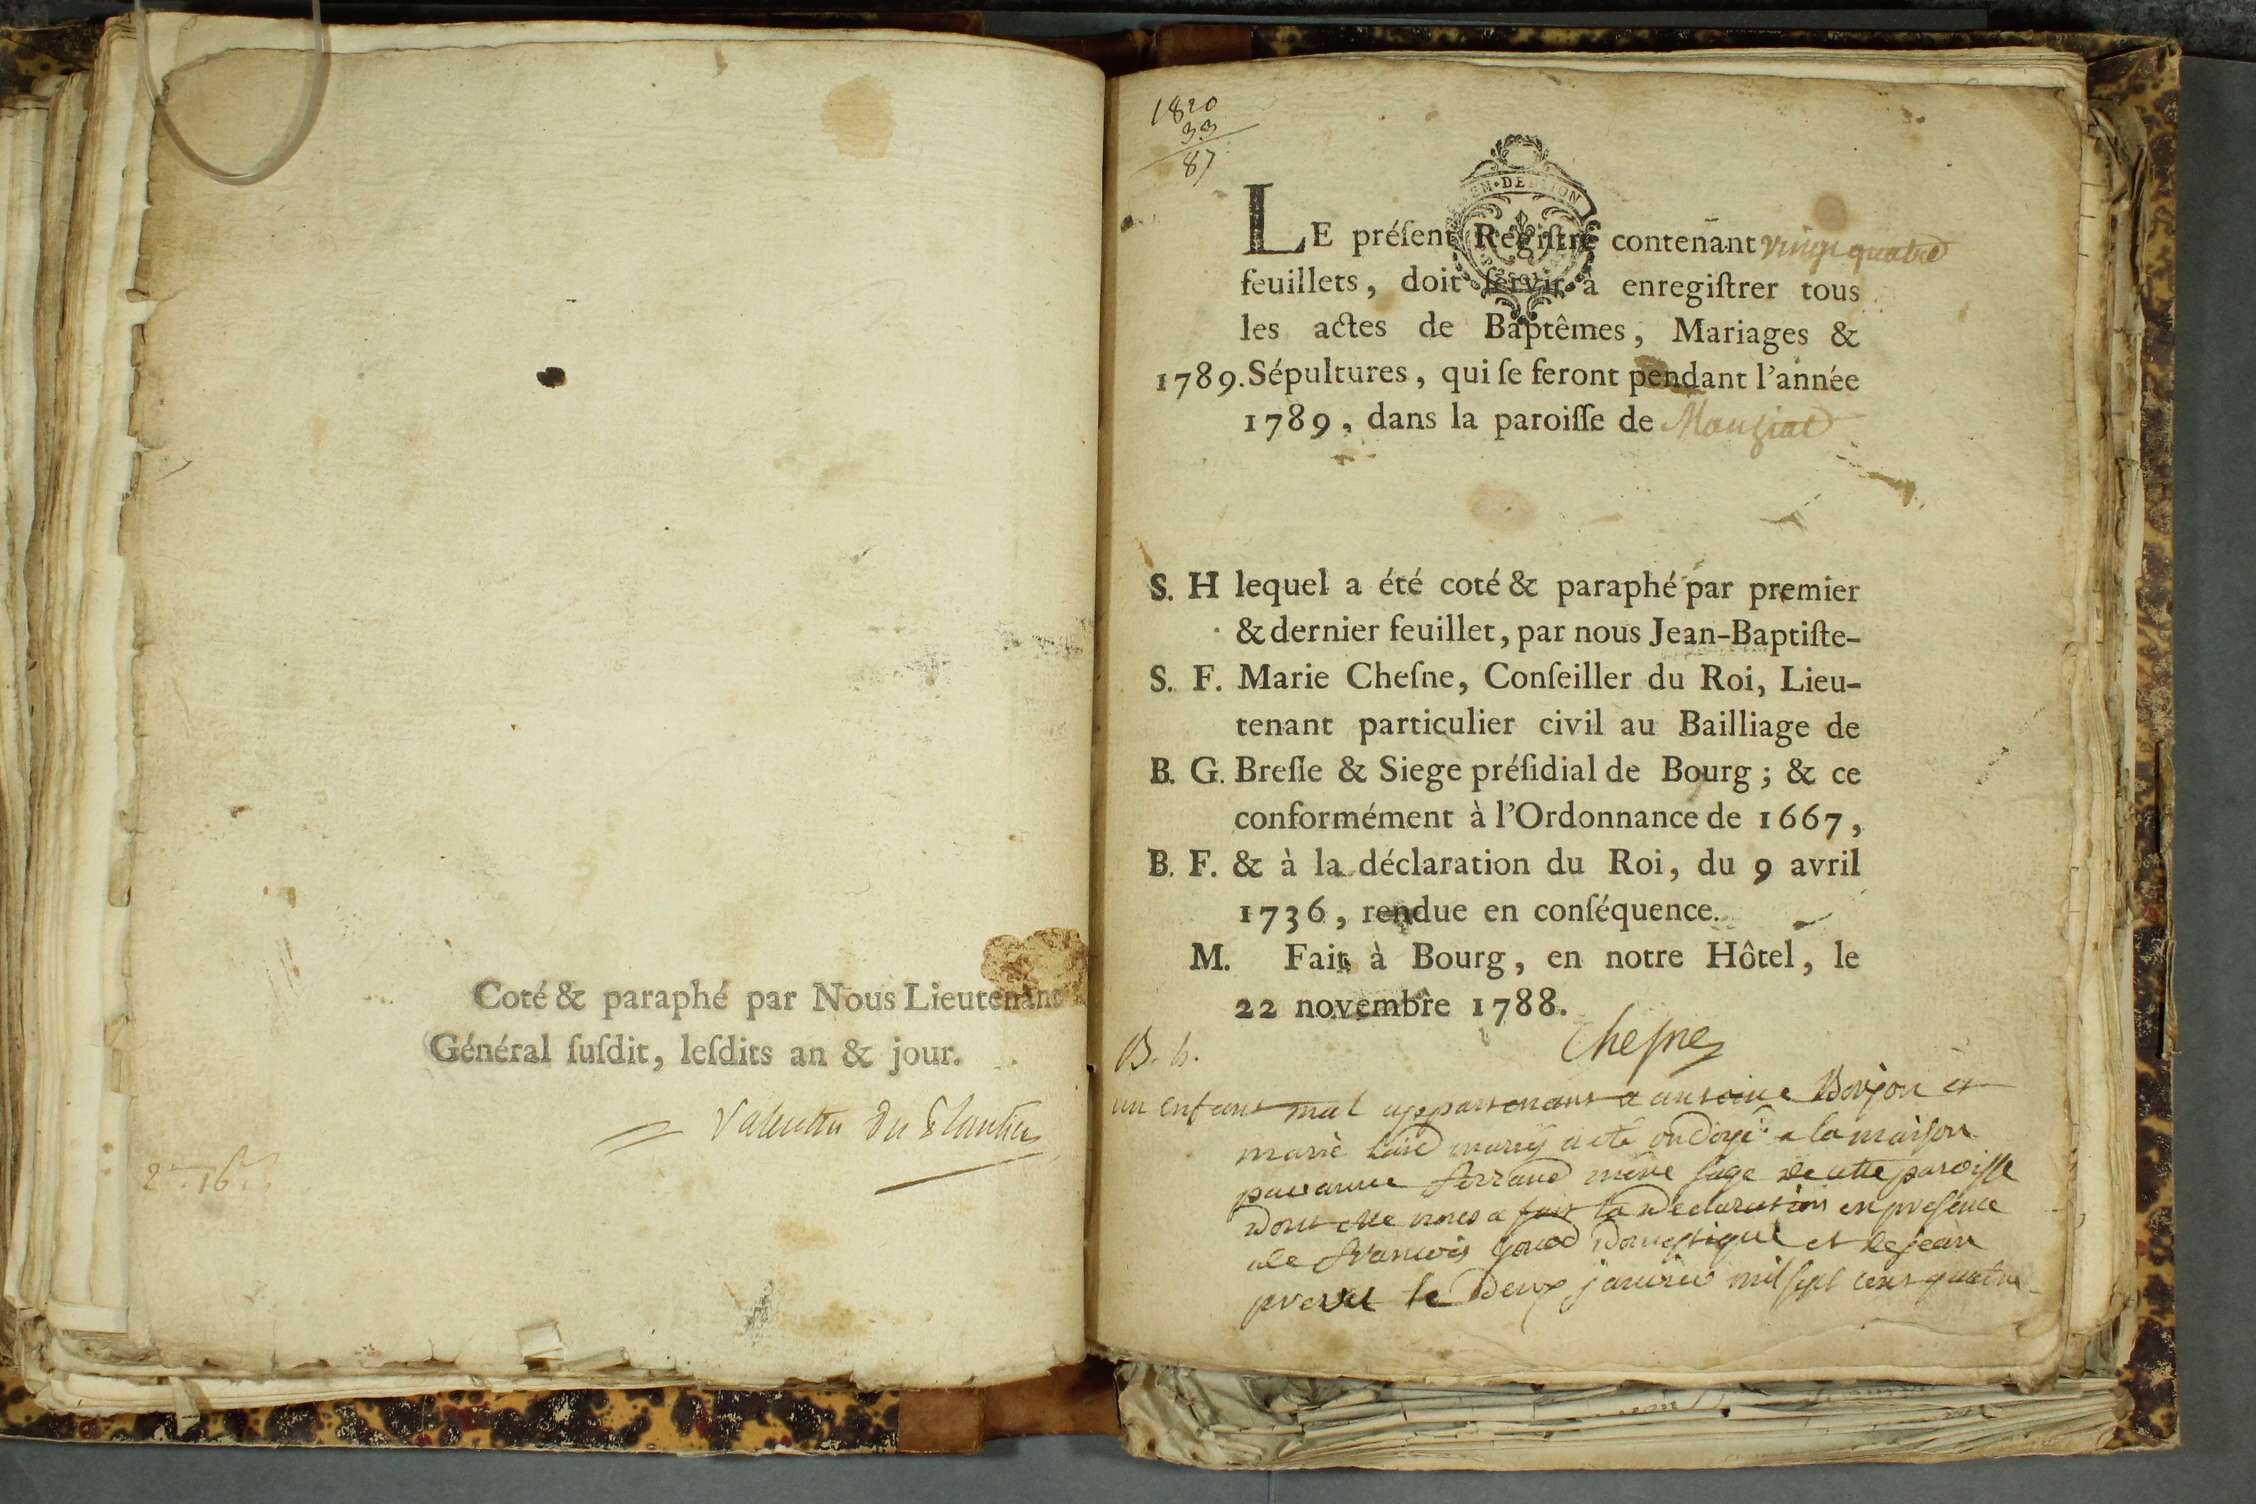 Coté & paraphé par Nous Lieutenant
Général ſuſdit, leſdits an & jour.
Valentin Du Plantier
1820
33
87
LE préſent Regiſtre contenant vingt quatre
feuillets, doit ſervir à enregiſtrer tous
les actes de Baptêmes, Mariages &
1789. Sépultures, qui ſe feront pendant l'année
1789, dans la paroiſſe de Manziat
S. H lequel a été coté & paraphé par premier
& dernier feuillet, par nous Jean-Baptiſte-
S. F. Marie Cheſne, Conſeiller du Roi, Lieu-
tenant particulier civil au Bailliage de
B. G. Breſſe & Siege préſidial de Bourg; & ce
conformément à l'Ordonnance de 1667,
B. F. & à la déclaration du Roi, du 9 avril
1736, rendue en conſéquence.
M. Fait à Bourg, en notre Hôtel, le
22 novembre 1788.
Cheſne
B. G.
un enfant mal appartenant a antoine Boyon et
marie mariés a eté ondoyé a la maison
par anne Ferrand mere sage de cette paroisse
dont elle nous a fait la declaration en presence
de francois domestique et de jean
le deux janvier mil sept cent quatre